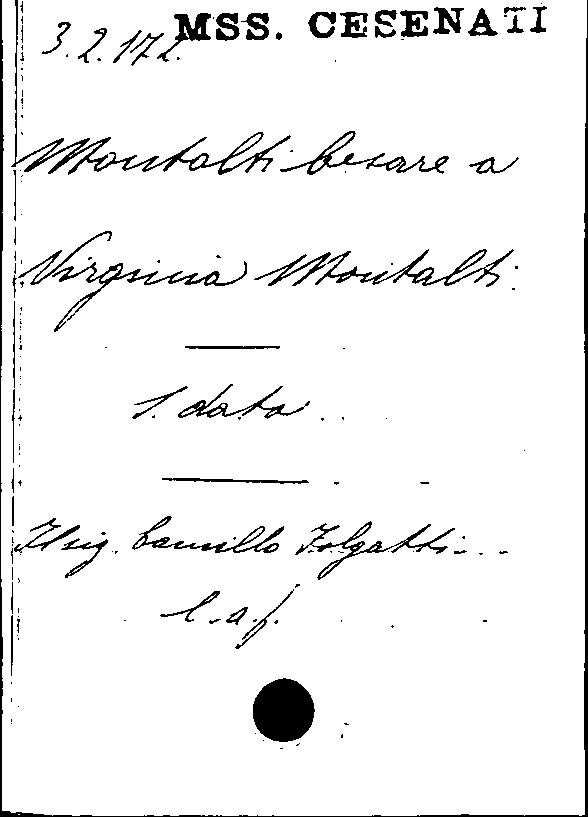 MSS. CESENATI
3.2.172.
Montalti Cesare a
Virginia Montalti.
S. data
Il sig. Camillo Folgatti
l. a. f.